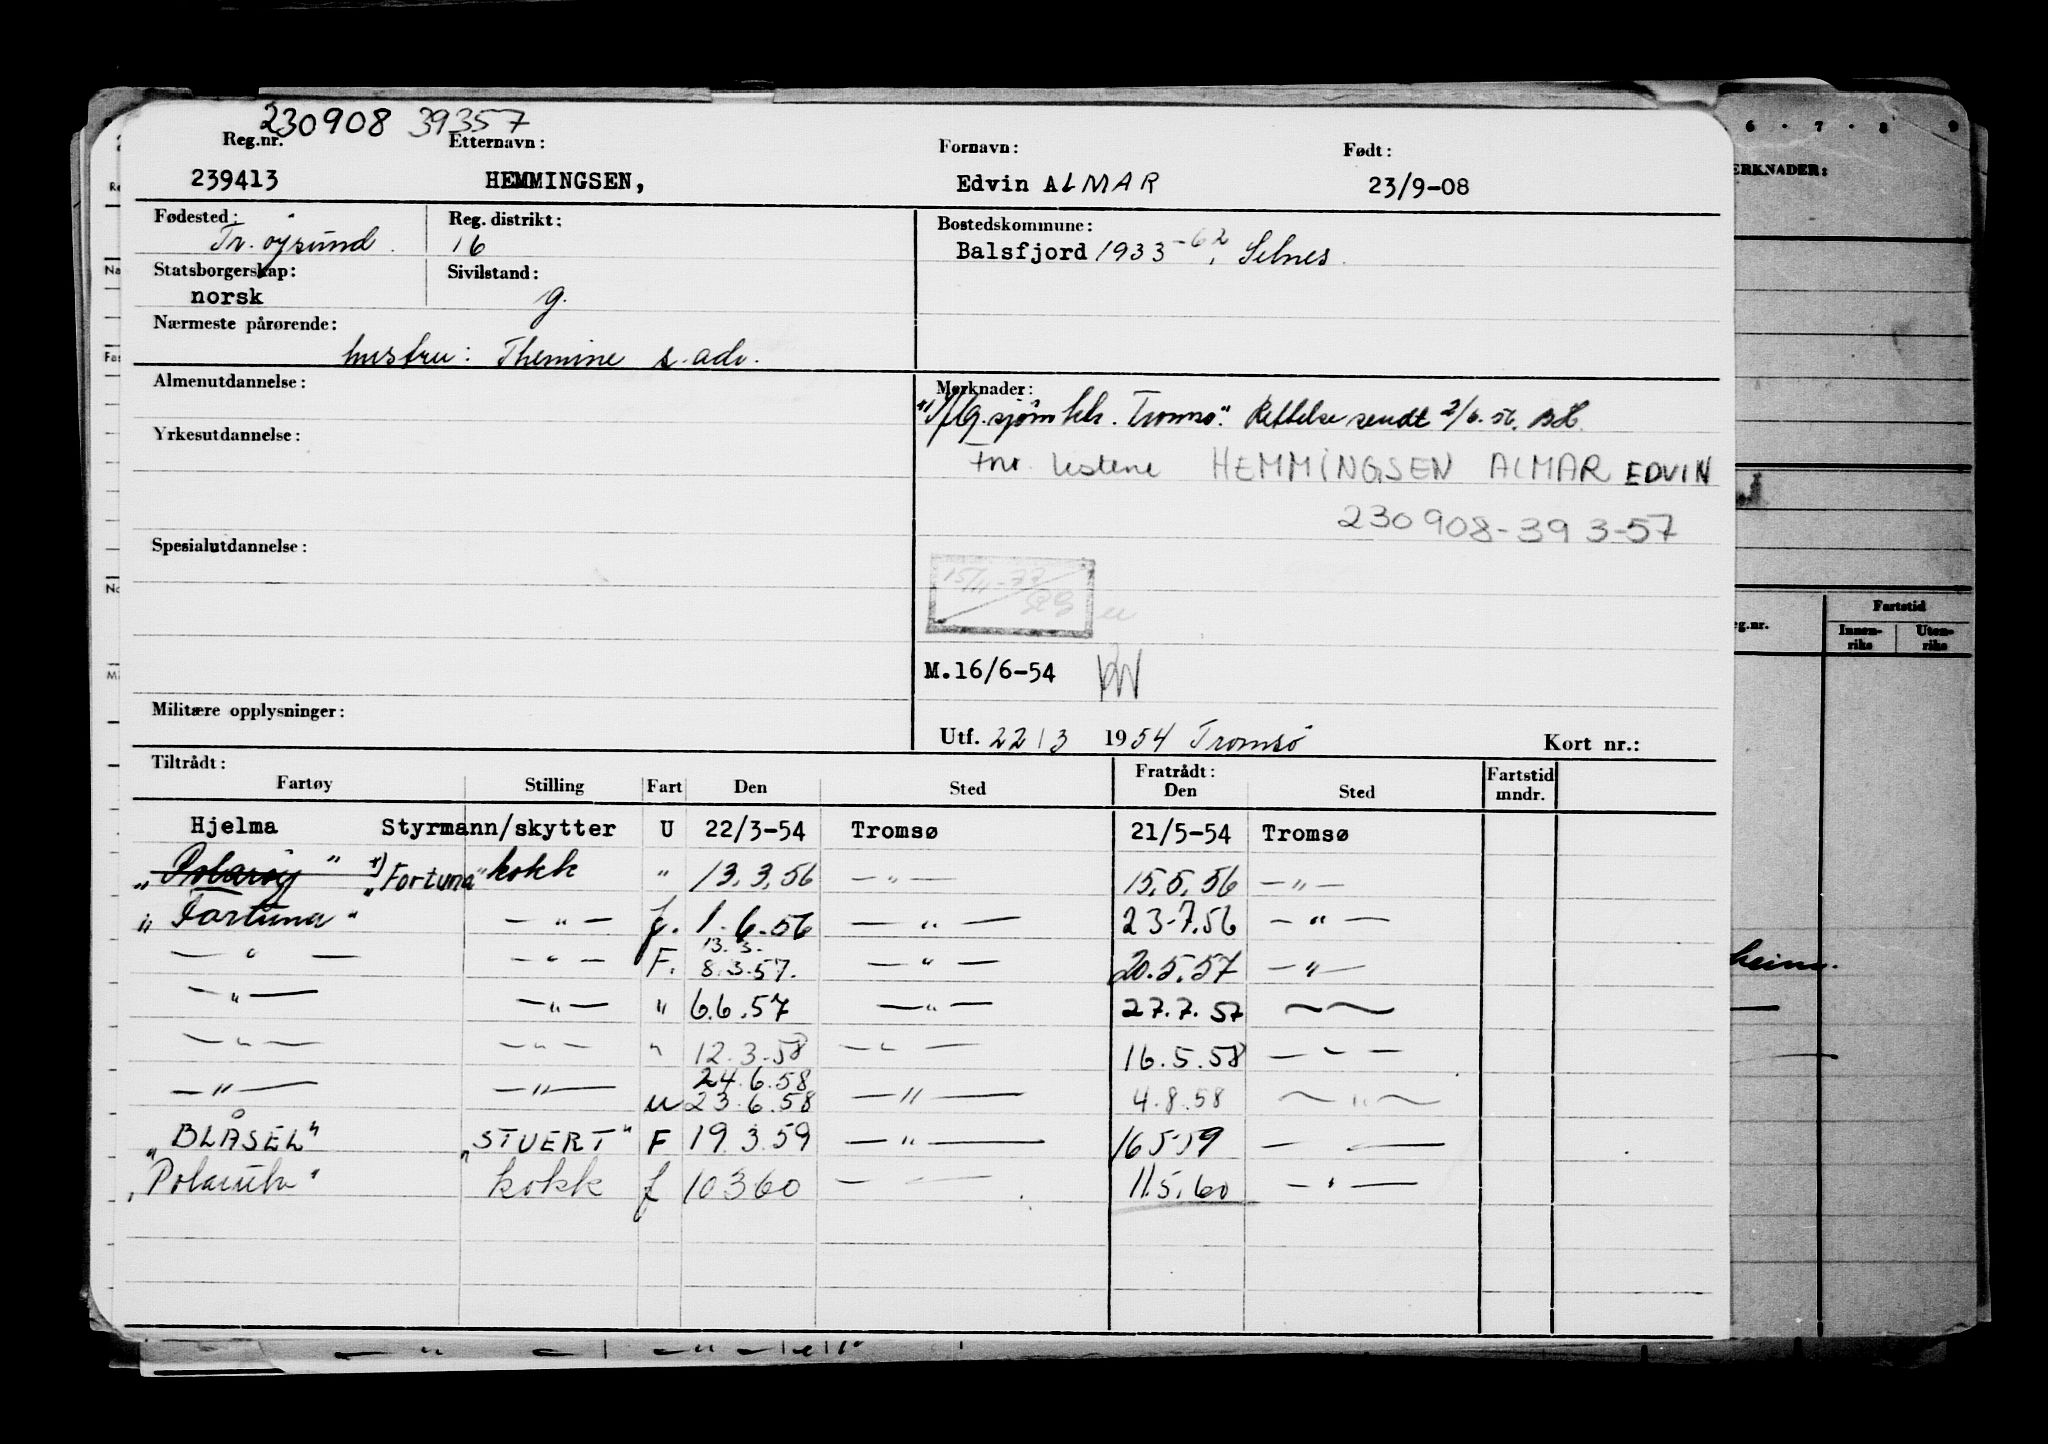 230908 39357
Reg.nr. Etternavn: Fornavn: Født:
239413 HEMMINGSEN, Edvin ALMAR 23/9-08
Fødested: Reg. distrikt: Bostedskommune:
Tr. øysund. 16 Balsfjord 1933-62, Selnes.
Statsborgerskap: Sivilstand:
norsk g.
Nærmeste pårørende:
hustru: Themine s. adr.
Almenutdannelse: Merknader:
sjøm. ktr. Tromsø". Rettelse sendt 2/6.56. BH.
Yrkesutdannelse:
Fnr. listene HEMMINGSEN ALMAR EDVIN
230908-393-57
Spesialutdannelse:
15/11-77
M.16/6-54
Militære opplysninger:
Utf. 22/3 1954 Tromsø Kort nr.:
Tiltrådt: Fratrådt: Fartstid
Fartøy Stilling Fart Den Sted Den Sted mndr.
Hjelma Styrmann/skytter U 22/3-54 Tromsø 21/5-54 Tromsø
x) "Fortuna" kokk " 13.3.56 — " — 15.5.56 — " —
"Fortuna" — " — f. 1.6.56 — " — 23.7.56 — " —
13.3.
— " — — " — F. 8.3.57. — " — 20.5.57 — " —
— " — — " — " 6.6.57 — " — 27.7.57 — —
— " — — " — " 12.3.58 — " — 16.5.58 — " —
24.6.58
— " — — " — u 23.6.58 — " — 4.8.58 — " —
"BLÅSEL" "STUERT" F 19.3.59 — " — 16559 — —
kokk f 10360 — — 11.5.60 — " —
6 . 7 . 8 . 9
ERKNADER:
g.nr. Fartstid
Innen-riks Uten-riks
heim.